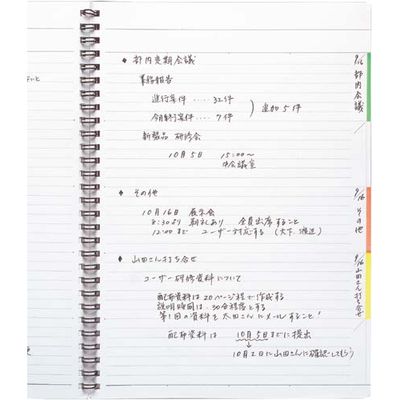 ◆ 部内定期会議
業務報告
進行案件 ‥‥ 32件
今月終了案件 ‥‥ 7件
追加5件
新製品 研修会
10月5日 15:00〜
会議室
◆ その他
10月16日 展示会
8:30より 朝礼あり 全員出席すること
12:00まで ユーザー対応する
◆ 山田さん打ち合せ
ユーザー研修資料について
配布資料は20ページ程で作成する
説明時間は30分程度とする
第1回の資料を太田さんにメールすること!
配布資料は 10月5日までに提出
10月2日に山田さんに確認してもらう
9/16 部内会議
9/16 その他
9/16 山田さん打ち合せ